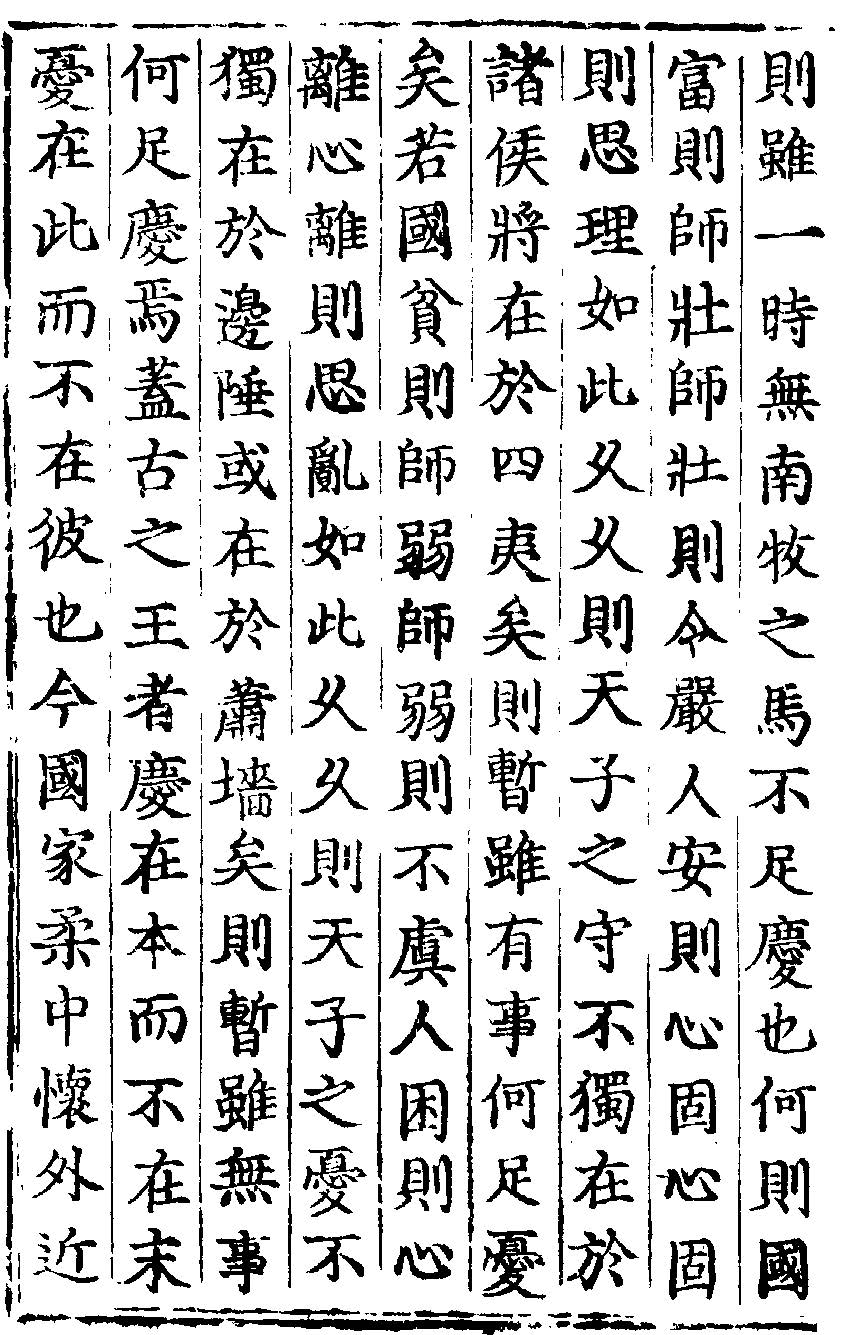 則雖一時無南牧之馬不足慶也何則國
富則師壯師壯則令嚴人安則心固心固
則思理如此久久則天子之守不獨在於
諸侯將在於四夷矣則暫雖有事何足憂
矣若國貧則師弱師弱則不虞人困則心
離心離則思亂如此久久則天子之憂不
獨在於邊陲或在於蕭墻矣則暫雖無事
何足慶焉蓋古之王者慶在本而不在末
憂在此而不在彼也今國家柔中懷外近